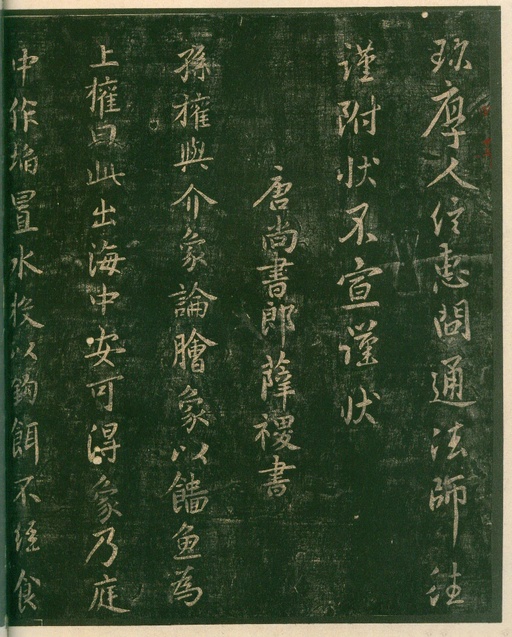 孱人信惠問通法師往
謹附狀不宣謹狀
唐尚書郎薛稷書
孫權與介象論膾象以鯔魚為
上權曰此出海中安可得象乃庭
中作埳置水後以鉤餌不經食